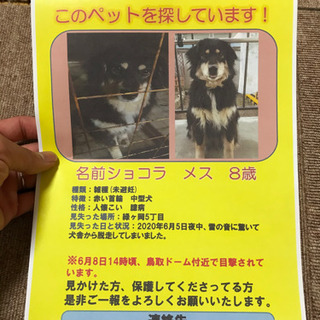 このペットを探しています！
名前ショコラ　メス　8歳
種類：雑種(未避妊)
特徴：赤い首輪　中型犬
性格：人懐こい　臆病
見失った場所：緑ヶ岡5丁目
見失った日と状況：2020年6月5日夜中、雷の音に驚いて
犬舎から脱走してしまいました。
※6月8日14時頃、鳥取ドーム付近で目撃されて
います。
見かけた方、保護してくださってる方
是非ご一報をよろしくお願いいたします。
連絡先